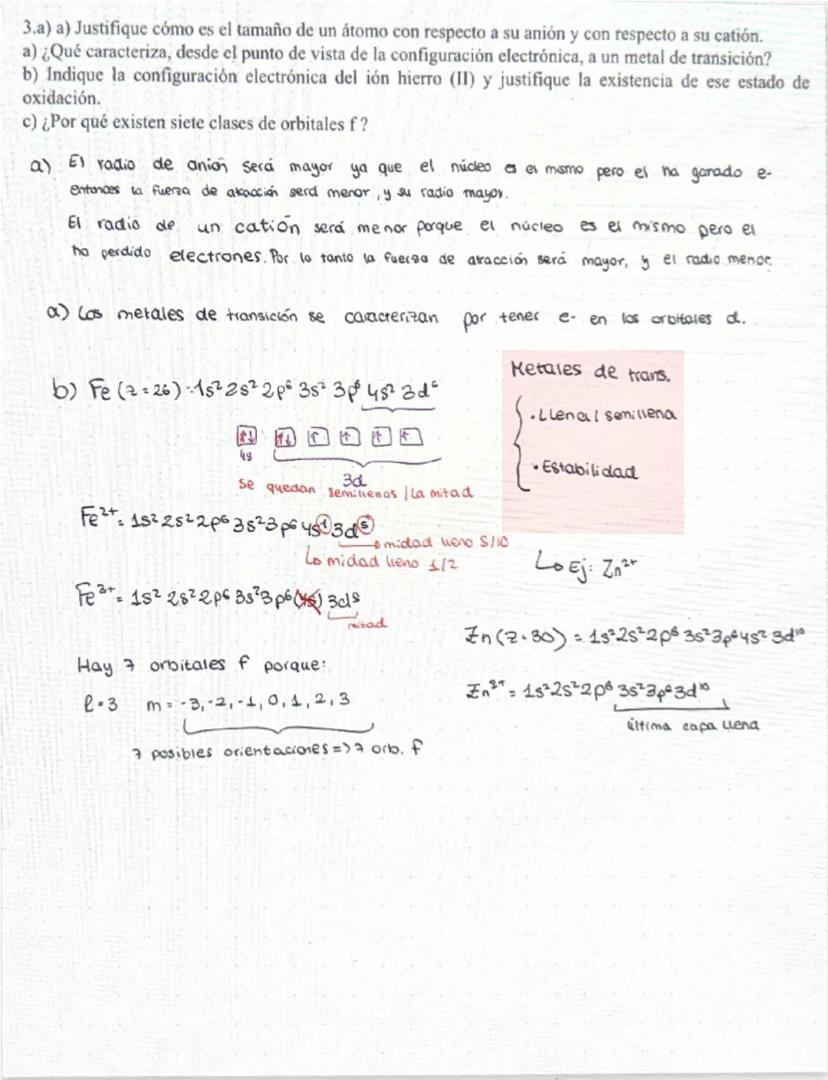 3.a) a) Justifique cómo es el tamaño de un átomo con respecto a su anión y con respecto a su catión.
a) ¿Qué caracteriza, desde el punto de vista de la configuración electrónica, a un metal de transición?
b) Indique la configuración electrónica del ión hierro (II) y justifique la existencia de ese estado de
oxidación.
c) ¿Por qué existen siete clases de orbitales f ?
a) El radio de anión será mayor ya que el núcleo es el mismo pero el ha ganado e-
entonces la fuerza de atracción será menor, y su radio mayor.
El radio de un catión será menor porque el núcleo es el mismo pero el
ha perdido electrones. Por lo tanto la fuerza de atracción será mayor, y el radio menor.
a) Los metales de transición se caracterizan por tener e- en los orbitales d.
b) Fe (z=26) = 1s² 2s² 2p⁶ 3s² 3p⁶ 4s² 3d⁶
↑↓ ↑↓ ↑ ↑ ↑ ↑
4s
3d
se quedan semillenos | la mitad
Metales de trans.
• Llena / semillena
• Estabilidad
Fe²⁺= 1s² 2s² 2p⁶ 3s² 3p⁶ 4s¹ 3d⁵
midad lleno 5/10
midad lleno 1/2
Fe³⁺= 1s² 2s² 2p⁶ 3s² 3p⁶ (4s) 3d⁵
mitad
Ej: Zn²⁺
Zn (z=30) = 1s² 2s² 2p⁶ 3s² 3p⁶ 4s² 3d¹⁰
Zn²⁺ = 1s² 2s² 2p⁶ 3s² 3p⁶ 3d¹⁰
última capa llena
Hay 7 orbitales f porque:
l=3 m = -3, -2, -1, 0, 1, 2, 3
7 posibles orientaciones => 7 orb. f